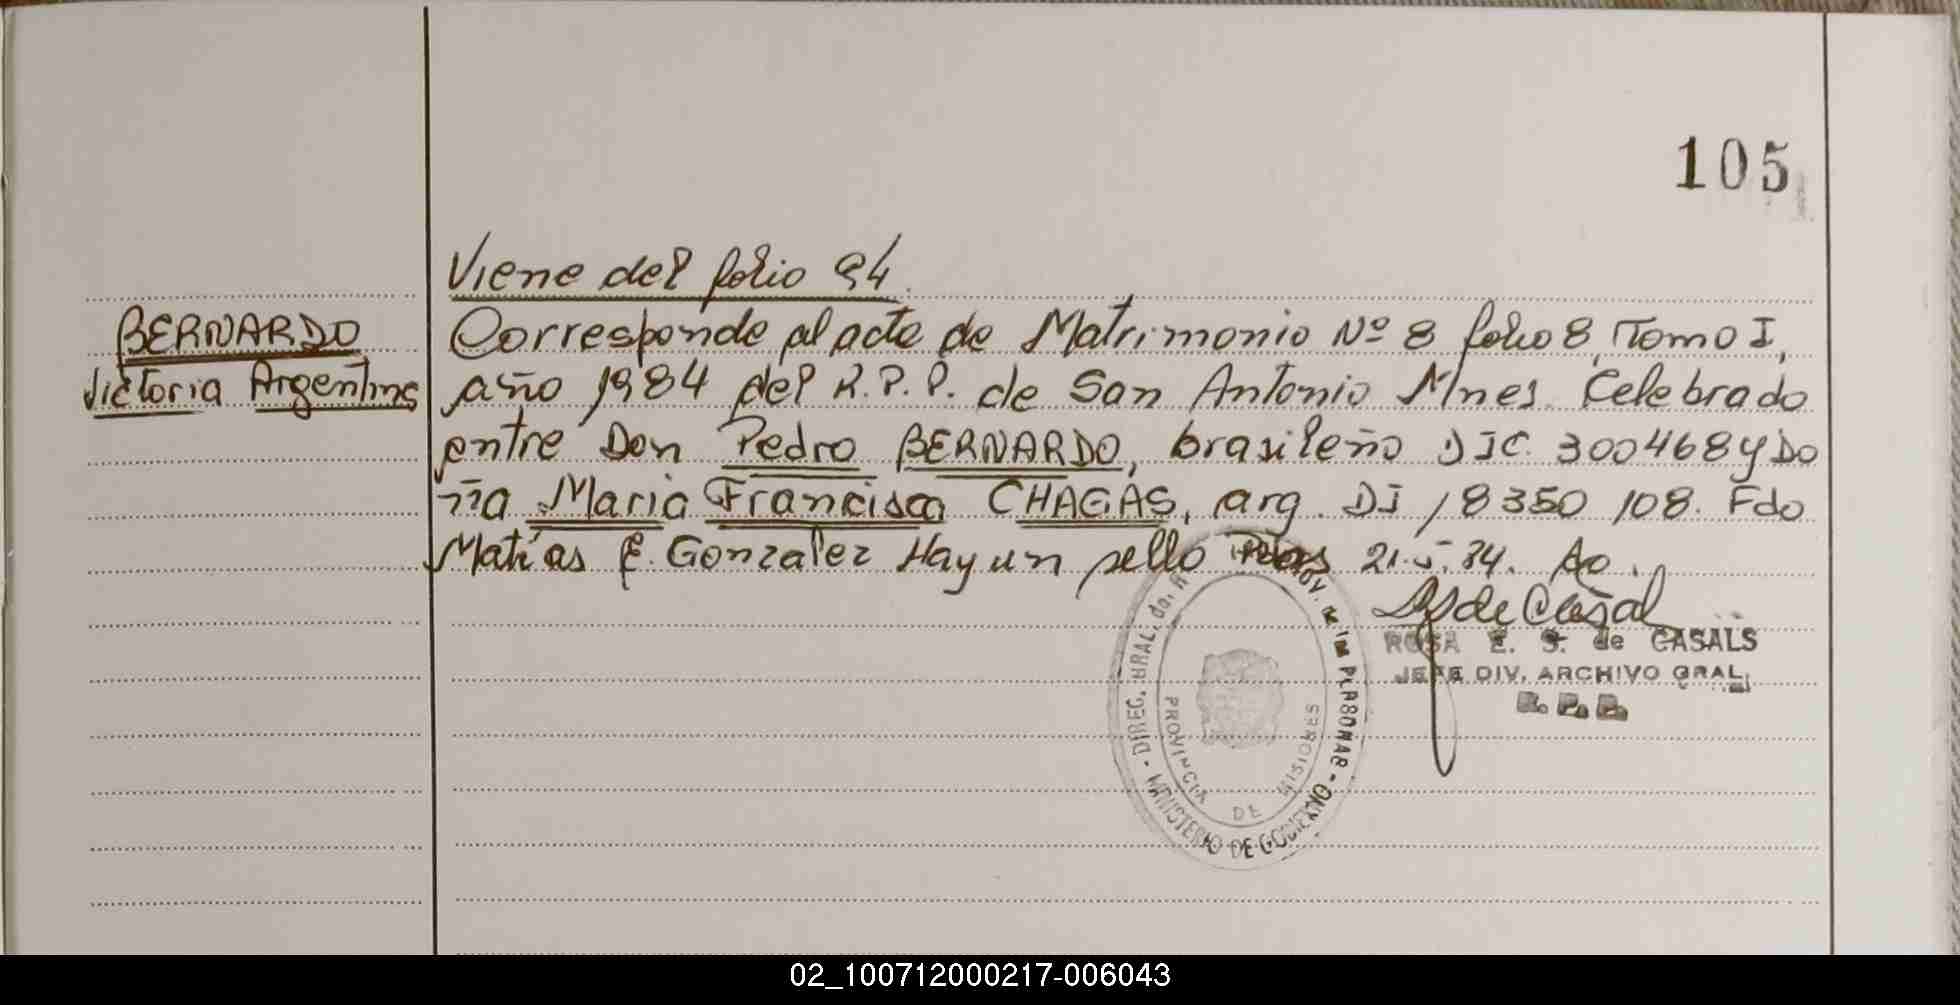 105
Viene del folio 94.
BERNARDO
Victoria Argentina
Corresponde al acta de Matrimonio Nº 8 folio 8, Tomo I,
año 1984 del R.P.P. de San Antonio Mnes. Celebrado
entre Don Pedro BERNARDO, brasileño DIC. 300468 y Do
ña Maria Francisca CHAGAS, arg. DI 18350108. Fdo
Matías E. Gonzalez Hay un sello 21.5.84.
ROSA E. S. de CASALS
JEFE DIV. ARCHIVO GRAL.
R. P. P.
DIREC. GRAL. DE LAS PERSONAS - MINISTERIO DE GOBIERNO
PROVINCIA DE MISIONES
02_100712000217-006043